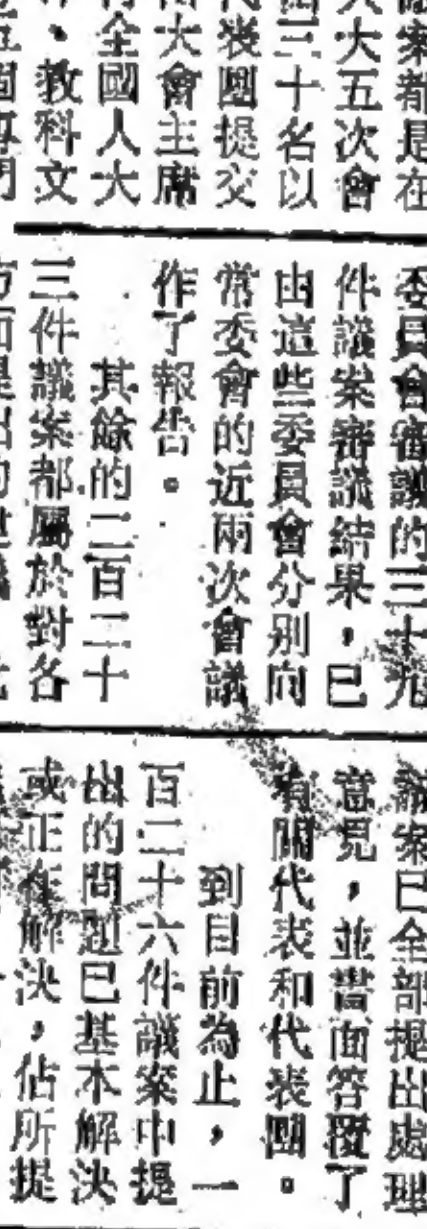 議案都是在
人大五次會
三十名以
代表團提交
大會主席
全國人大
教科文
委員會審議的三十九
件議案審議結果，已
由這些委員會分別向
常委會的近兩次會議
作了報告。
其餘的二百二十
三件議案都屬於對各
方面提出的建議
議案已全部提出處理
意見，並書面答覆了
有關代表和代表團。
到目前為止，一
百二十六件議案中提
出的問題已基本解決
或正在解決，佔所提